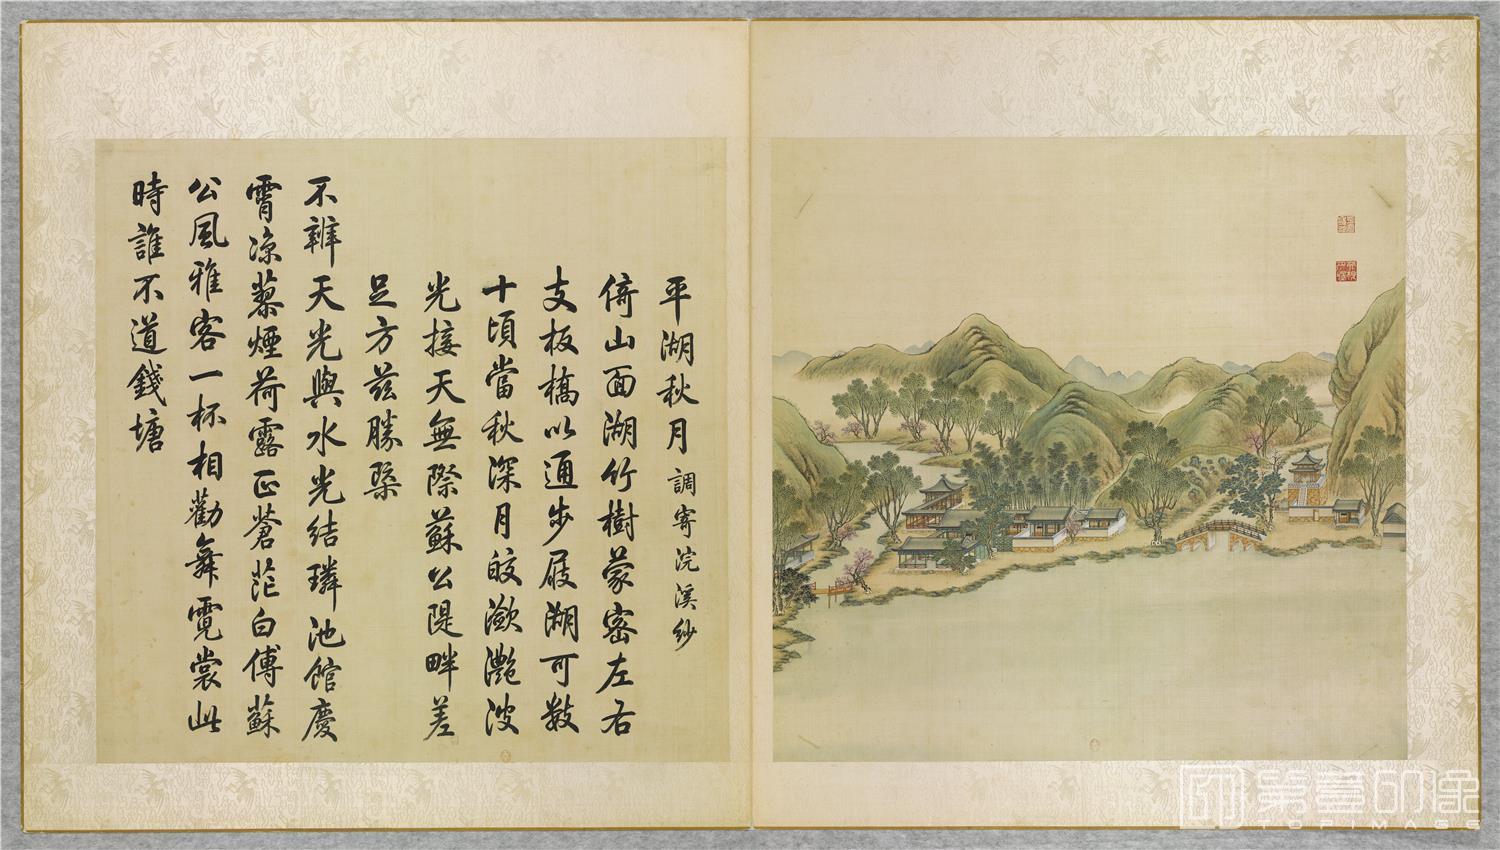 平湖秋月 調寄浣溪紗
倚山面湖竹樹蒙密左右
支板橋以通步屐湖可數
十頃當秋深月皎瀲灧波
光接天無際蘇公隄畔差
足方茲勝槩
不辨天光與水光結璘池館慶
霄涼蓼煙荷露正蒼茫白傅蘇
公風雅客一杯相勸舞霓裳此
時誰不道錢塘
第壹印象
TOPIMAGE